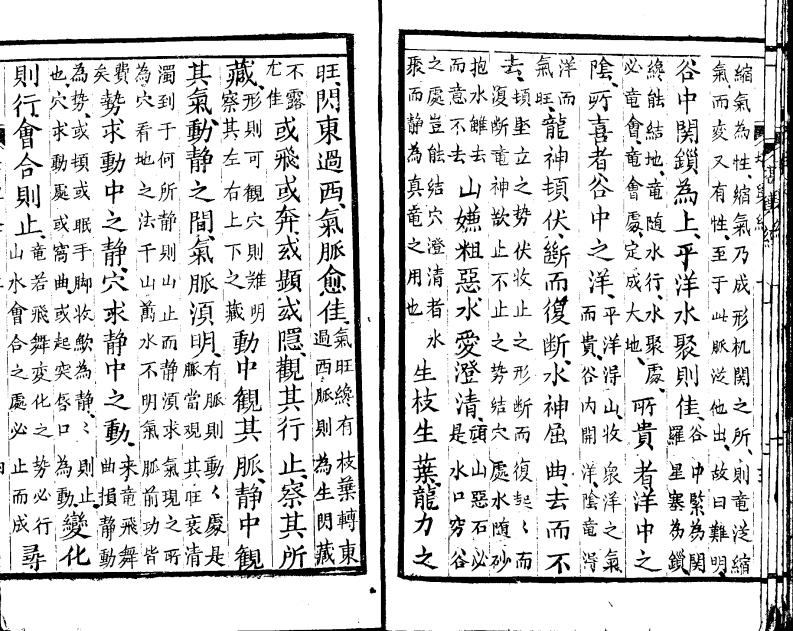 縮氣為性、縮氣乃成形机関之所、則竜逆縮
氣而変又有性、至于此脈逆他出、故曰難明、
谷中関鎖為上、平洋水聚則佳、
谷中緊為関
羅星塞為鎖
終能結地、竜随水行、水聚處、
必竜會、竜會處、定成大地、
所貴者洋中之
陰、所喜者谷中之洋、
平洋淂山收衆洋之氣
而貴、谷内開洋、陰竜淂
洋而
氣旺、
龍神頓伏、斷而復断、水神屈曲、去而不
去、
頓立之势伏收止之形断而復起〻而
復断竜神歇止不止之势结穴處水随砂
抱水雖去
而意不去
山嫌粗惡、水愛澄清、
頑山惡石必
是水口穷谷
之處豈能结穴澄清者水
聚而静為真竜之用也
生枝生葉、龍力之
旺、閃東過西、氣脈愈佳、
氣旺終有枝葉轉東
過西脈則為生閃藏
不露
尤佳
或飛或奔、或顕或隠、觀其行止、察其所
藏、
形則可觀穴則難明
察其左右上下之藏
動中觀其脈、静中觀
其氣、動静之間、氣脈湏明、
有脈則動〻處是
脈當現其旺衰清
濁到于何所静則山止而静湏求氣現之所
為穴看地之法千山萬水不明氣脈前功皆
費
矣
势求動中之静、穴求静中之動、
来竜飛舞
曲損静動
為势、或頓或眠手脚收歛為静、〻則止、
也、穴求動處或窩曲或起突唇口為動、
變化
則行會合則止、
竜若飛舞変化之势必行
山水會合之處必止而成
尋